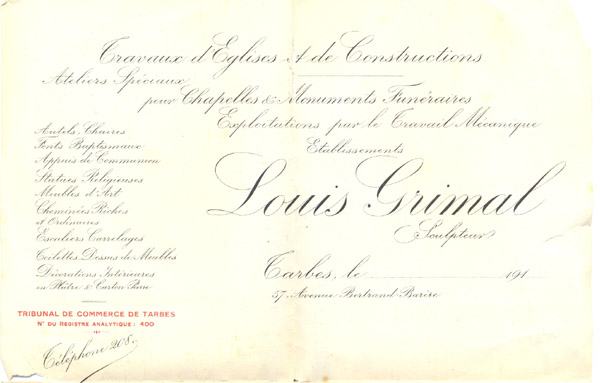 Travaux d'Eglises & de Constructions
Ateliers Spéciaux
pour Chapelles & Monuments Funéraires
Exploitations par le Travail Mécanique
Etablissements
Louis Grimal
Sculpteur
Tarbes, le 191
57, Avenue Bertrand-Barère
Autels, Chaires
Fonts Baptismaux
Appuis de Communion
Statues Religieuses
Meubles d'Art
Cheminées Riches
et Ordinaires
Escaliers Carrelages
Toilettes, Dessus de Meubles
Décorations Intérieures
en Plâtre & Carton Pierre
TRIBUNAL DE COMMERCE DE TARBES
N° DU REGISTRE ANALYTIQUE : 400
Téléphone 208.